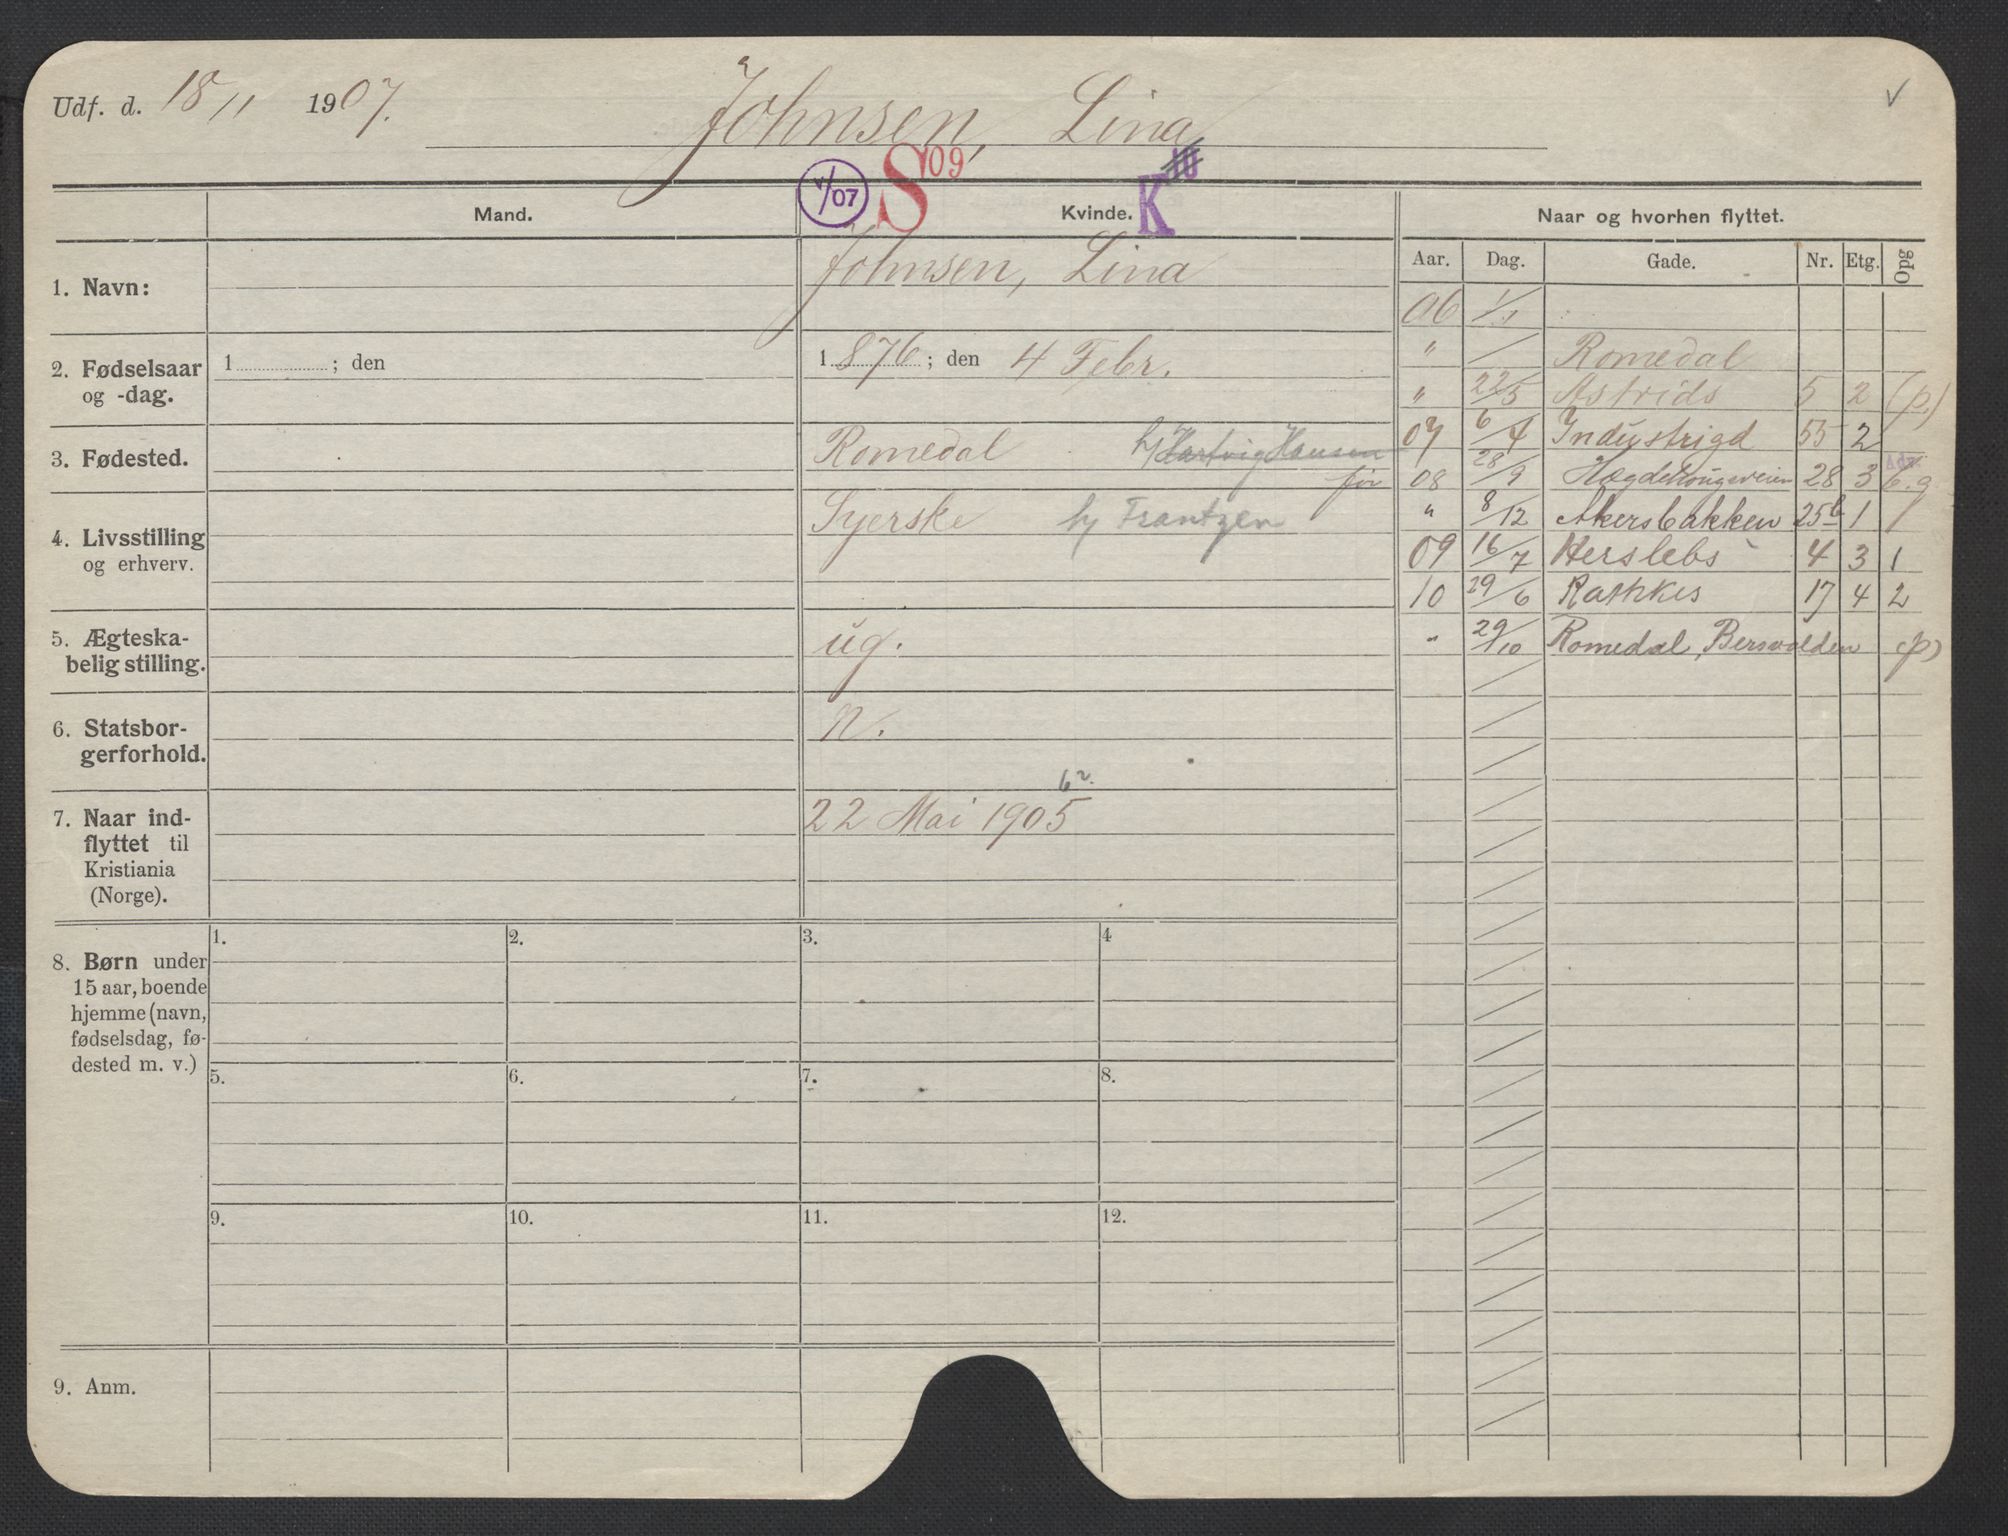 Udf. d. 18/11 1907.
Johnsen, Lina
V/07 S 09 K 10
Mand.
Kvinde.
Naar og hvorhen flyttet.
Aar. Dag. Gade. Nr. Etg. Opg
1. Navn:
Johnsen, Lina
2. Fødselsaar
og -dag.
1 ; den
1876; den 4 Febr.
3. Fødested.
Romedal h/ Hartvig Hansen
frv
4. Livsstilling
og erhverv.
Syerske hj Frantzen
5. Ægteska-
belig stilling.
ug.
6. Statsbor-
gerforhold.
n.
7. Naar ind-
flyttet til
Kristiania
(Norge).
22 Mai 1905
8. Børn under
15 aar, boende
hjemme (navn,
fødselsdag, fø-
dested m. v.)
1. 2. 3. 4
5. 6. 7. 8.
9. 10. 11. 12.
9. Anm.
06 1/1
" Romedal
" 22/5 Astrids 5 2 (p.)
07 6/4 Industrigd 55 2
08 28/9 Hægdehougsveien 28 3
" 8/12 Akersbakken 25b 1 1
09 16/7 Herslebs 4 3 1
10 29/6 Rathkes 17 4 2
" 29/10 Romedal, Bersvolden (p)